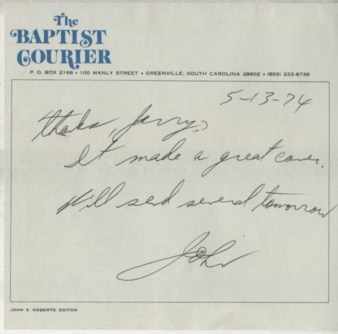 The
BAPTIST
COURIER
P. O. BOX 2168 • 100 MANLY STREET • GREENVILLE, SOUTH CAROLINA 29602 • (803) 232-8736
5-13-74
thanks, Jerry.
It made a great cover.
Will send several tomorrow
John
JOHN E. ROBERTS, EDITOR